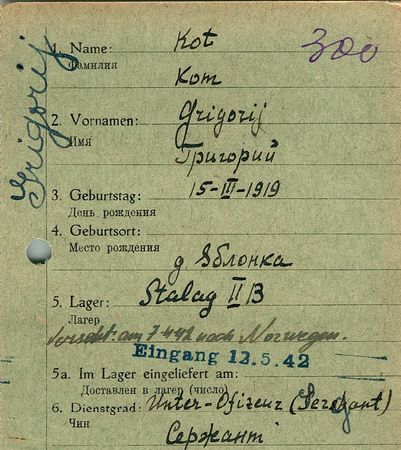 Grigorij
300
1. Name: Kot
Фамилия
Кот
2. Vornamen: Grigorij
Имя
Григорий
3. Geburtstag: 15-III-1919
День рождения
4. Geburtsort:
Место рождения
д. Яблонка
5. Lager: Stalag II B
Лагер
am 7.4.42 nach Norwegen.
Eingang 12.5.42
5a. Im Lager eingeliefert am:
Доставлен в лагер (число)
6. Dienstgrad: Unter-Ofizeur (Sergant)
Чин
Сержант